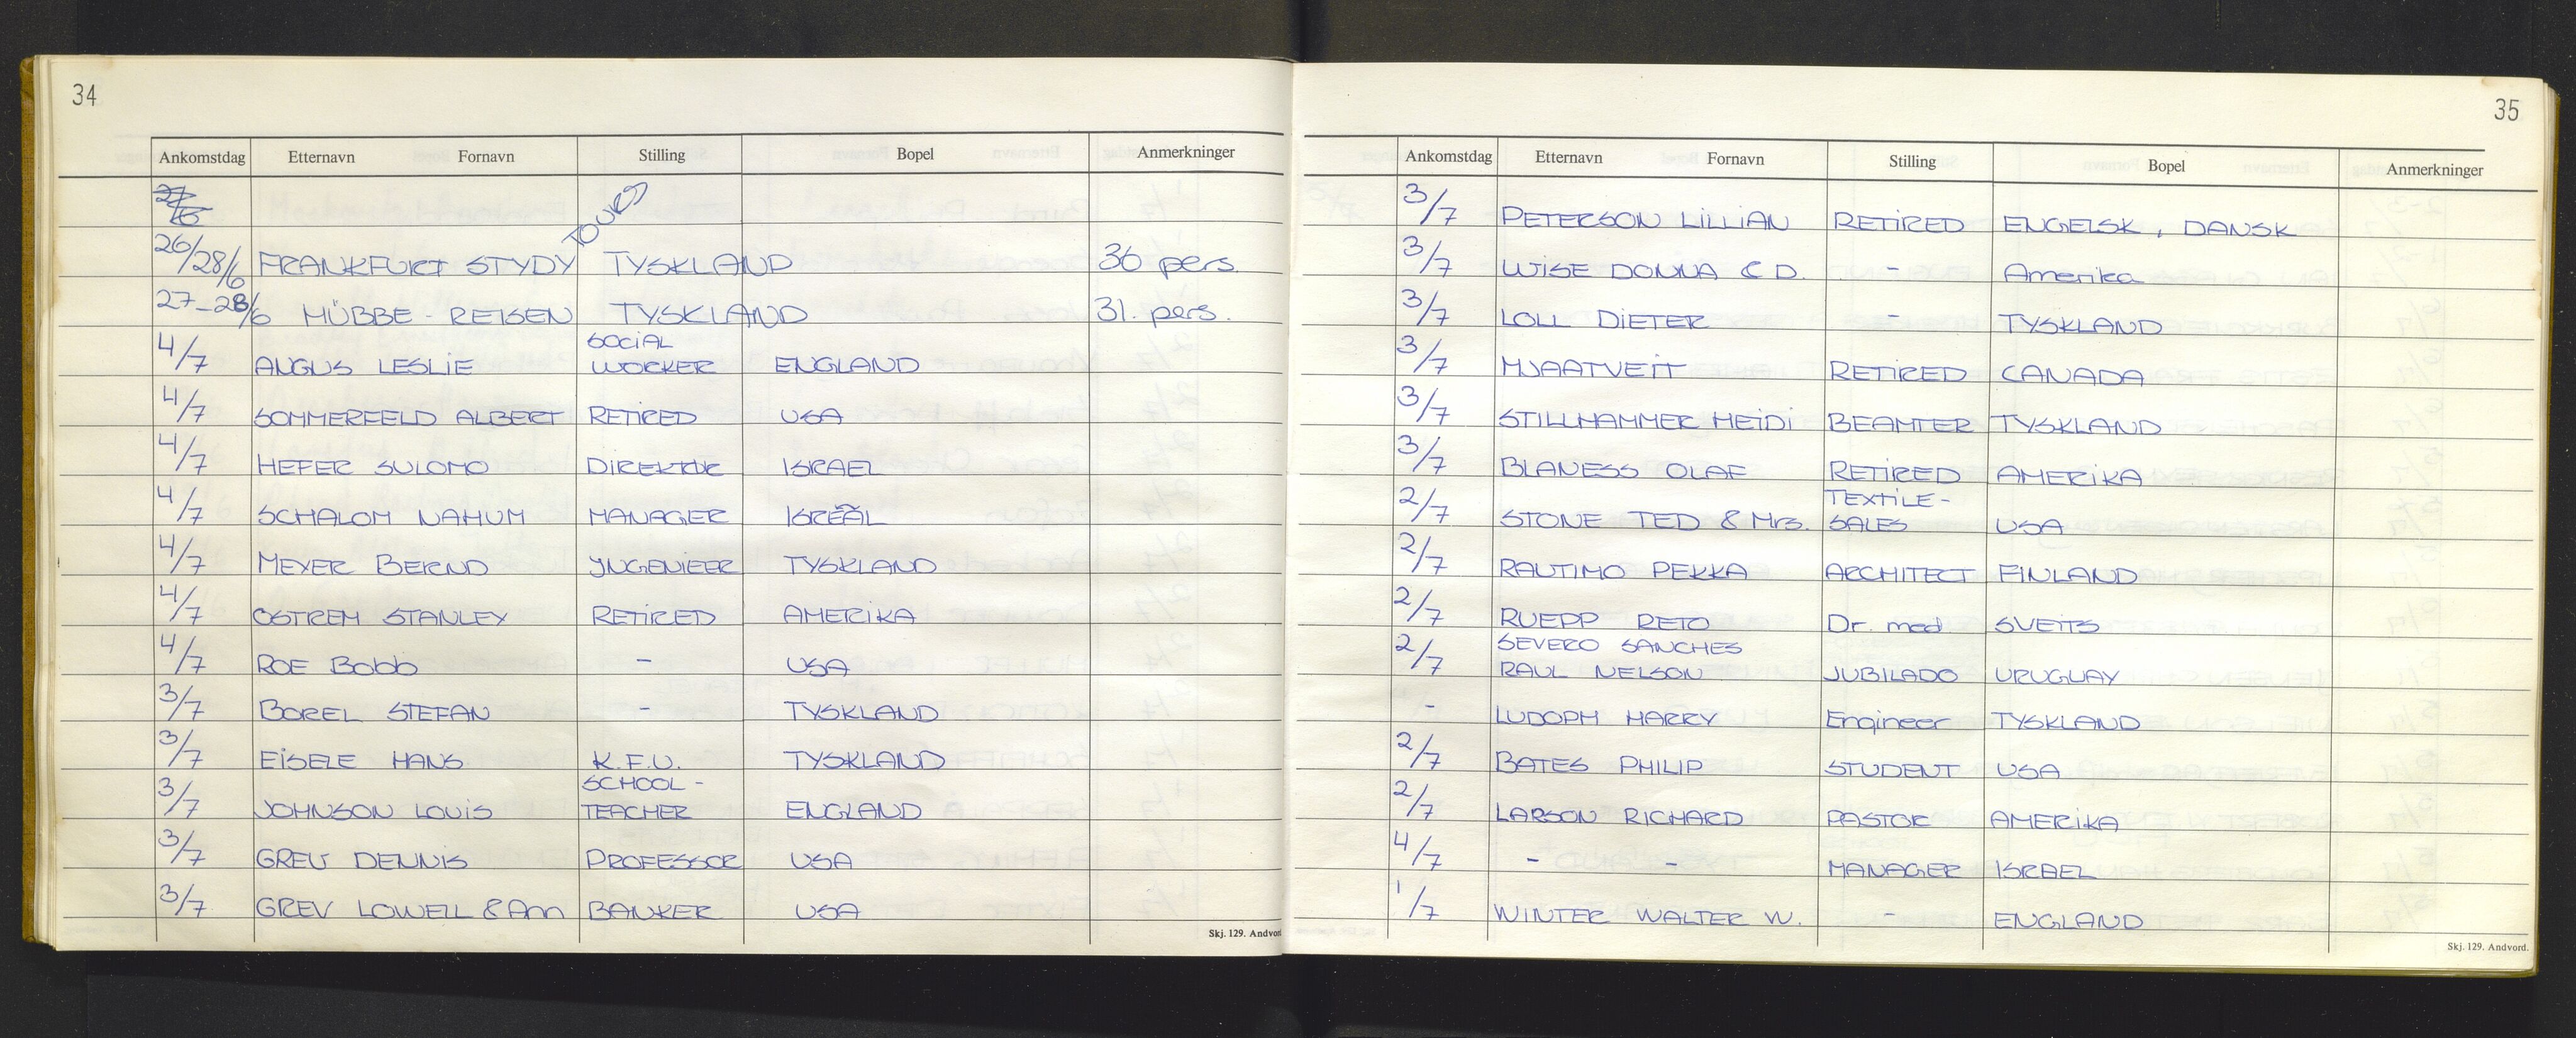 34
Ankomstdag Etternavn Fornavn Stilling Bopel Anmerkninger
27/6
26/28/6 FRANKFURT STYDY TOURS TYSKLAND 36 pers.
27-28/6 HÜBBE - REISEN TYSKLAND 31. pers.
4/7 ANGUS LESLIE SOCIAL WORKER ENGLAND
4/7 SOMMERFELD ALBERT RETIRED USA
4/7 HEFER SULOMO DIREKTØR ISRAEL
4/7 SCHALOM NAHUM MANAGER ISREAL
4/7 MEYER BERND YNGENIEER TYSKLAND
4/7 OSTREM STANLEY RETIRED AMERIKA
4/7 ROE Bobb - USA
3/7 BOREL STEFAN - TYSKLAND
3/7 EISELE HANS K.F.U. TYSKLAND
3/7 JOHNSON LOUIS SCHOOL-TEACHER ENGLAND
3/7 GREV DENNIS PROFESSOR USA
3/7 GREV LOWELL & Ann BANKER USA
Skj. 129. Andvord
35
Ankomstdag Etternavn Fornavn Stilling Bopel Anmerkninger
3/7 PETERSON LILLIAN RETIRED ENGELSK, DANSK
3/7 WISE DONNA & D. - Amerika
3/7 LOLL DIETER - TYSKLAND
3/7 MJAATVEIT RETIRED CANADA
3/7 STILLHAMMER HEIDI BEAMTER TYSKLAND
3/7 BLANESS OLAF RETIRED AMERIKA
2/7 STONE TED & Mrs. TEXTILE-SALES USA
2/7 RAUTIMO PEKKA ARCHITECT FINLAND
2/7 RUEPP RETO Dr. med SVEITS
2/7 SEVERO SANCHES RAUL NELSON JUBILADO URUGUAY
- LUDOPH HARRY Engineer TYSKLAND
2/7 BATES PHILIP STUDENT USA
2/7 LARSON RICHARD PASTOR AMERIKA
4/7 - - MANAGER ISRAEL
1/7 WINTER WALTER W. - ENGLAND
Skj. 129. Andvord.